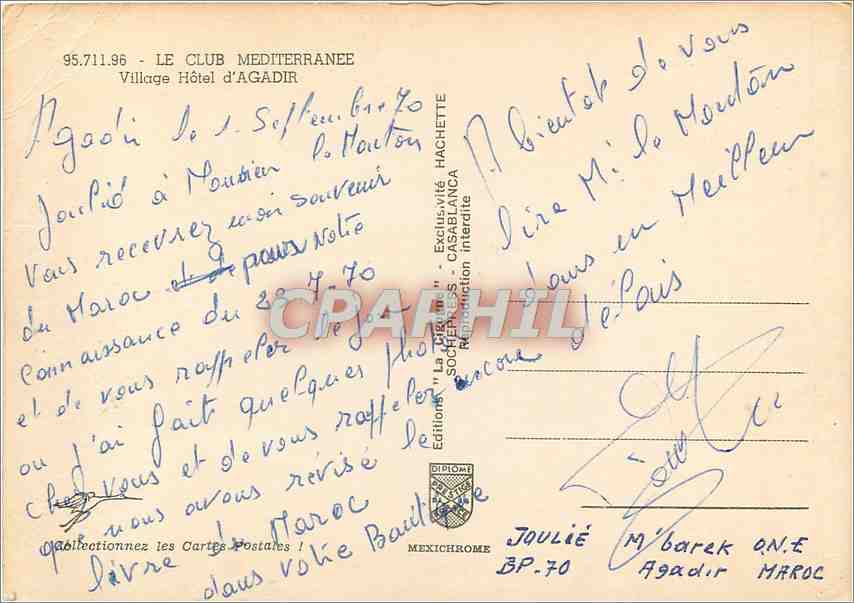 95.711.96 - LE CLUB MEDITERRANEE
Village Hôtel d'AGADIR
Agadir le 1. Septembre 70
Joulié à Monsieur le Mouton
Vous recevrez mon souvenir
du Maroc pour Notre
connaissance du 28-7-70
et de vous rappeler le jour
ou j'ai fait quelques photo
chez vous et de vous rappeler encore
que nous avons révisé le
livre du Maroc
dans votre Boutique
A bientot de vous
lire Mr le Mouton
dans un Meilleur
délais
Editions "La Cigogne" - Exclusivité HACHETTE
SOCHEPRESS - CASABLANCA
Reproduction interdite
CPAPHIL
DIPLOME
PRESTIGE
Collectionnez les Cartes Postales !
MEXICHROME
JOULIÉ M'barek O.N.E
BP-70 Agadir MAROC